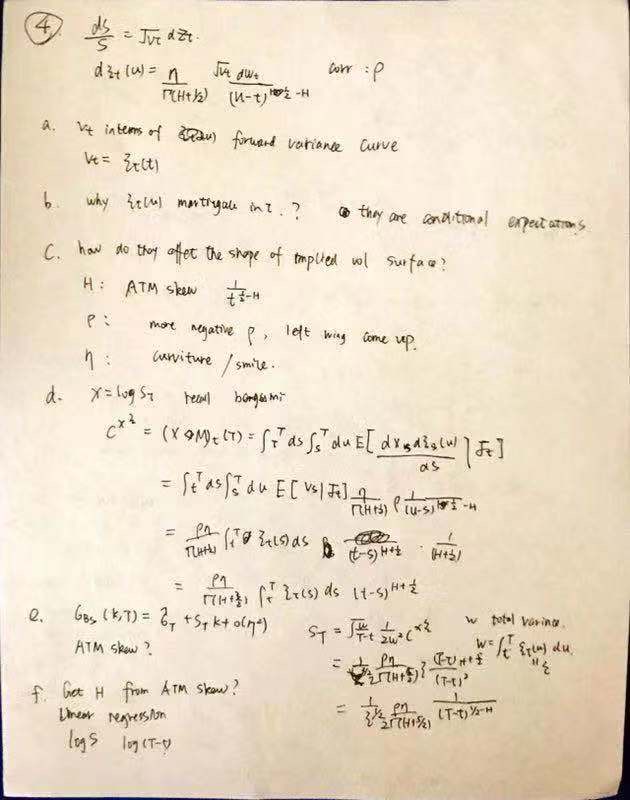 4. dS/S = √Vt dZt.
dξt(u) = η/Γ(H+1/2) √Vt dWt/(u-t)^{1/2-H} corr : ρ
a. Vt in terms of forward variance curve
Vt = ξt(t)
b. why ξt(u) martingale in t. ? they are conditional expectations
C. how do they affect the shape of implied vol surface?
H: ATM skew 1/t^{1/2-H}
ρ: more negative ρ, left wing come up.
η: curviture / smile.
d. X = log St recall bergomi
C^{xξ} = (X◇M)t(T) = ∫_t^T ds ∫_s^T du E[ dXs dξs(u)/ds | Ft]
= ∫_t^T ds ∫_s^T du E[Vs|Ft] η/Γ(H+½) ρ 1/(u-s)^{½-H}
= ρη/Γ(H+½) ∫_t^T ξt(s) ds (t-s)^{H+½} · 1/(H+½)
= ρη/Γ(H+3/2) ∫_t^T ξt(s) ds (t-s)^{H+½}
e. σBS(k,T) = σ̂T + ST k + O(η²) ST = √(w/(T-t)) 1/(2w²) C^{xξ} w total variance
ATM skew? w = ∫_t^T ξt(u) du.
= ρη/Γ(H+5/2) (T-t)^{H+3/2}/(T-t)²
f. Get H from ATM skew?
Linear regression
= 1/ξ^{1/2} ρη/2Γ(H+5/2) 1/(T-t)^{1/2-H}
log S log(T-t)